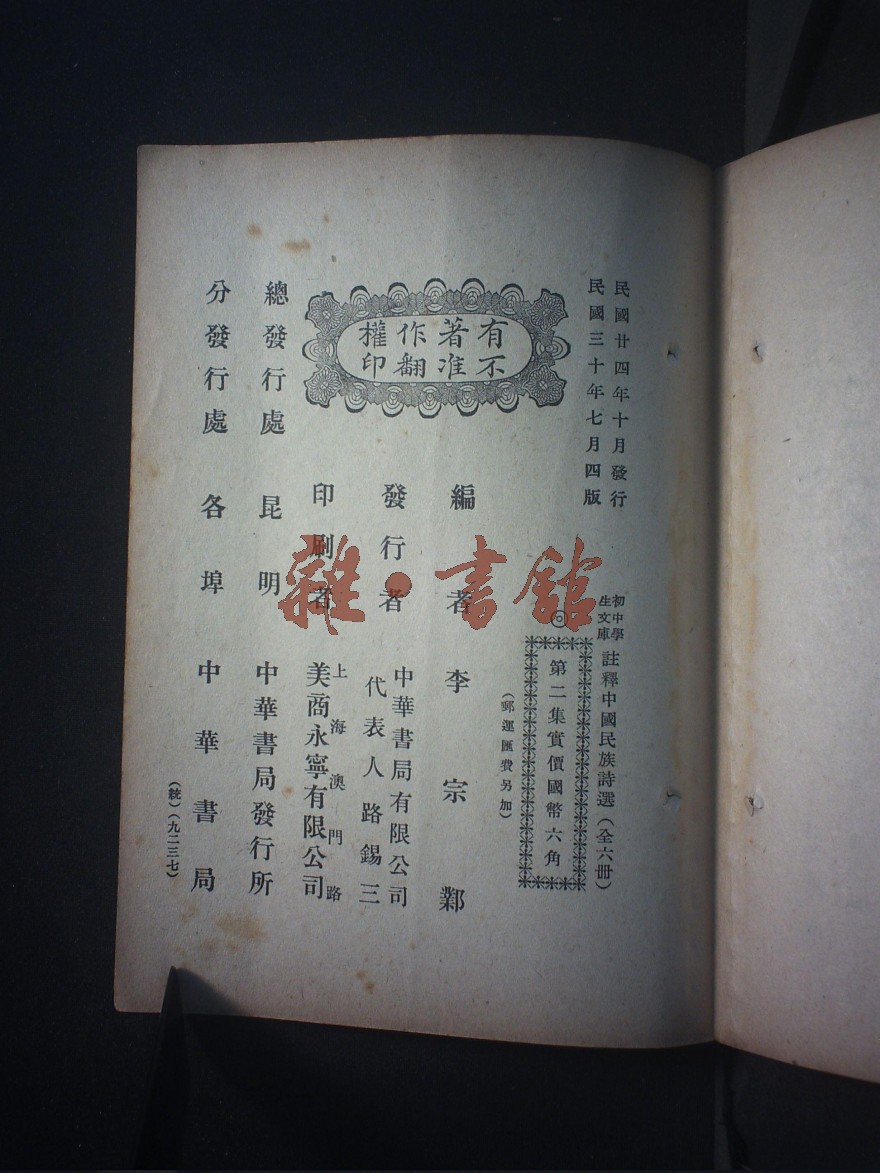 民國廿四年十月發行
民國三十年七月四版
初中學
生文庫
註釋中國民族詩選（全六册）
◎
第二集實價國幣六角
（郵運匯費另加）
有著作權
不准翻印
編者 李宗鄴
發行者 中華書局有限公司
代表人路錫三
印刷者 上海澳門路
美商永寧有限公司
總發行處 昆明 中華書局發行所
分發行處 各埠 中華書局
（統）（九二三七）
雜·書館